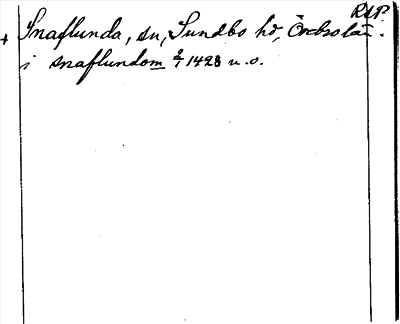 RAP.
+ Snaflunda, sn, Sundbo hd, Örebro län.
i snaflundom 2/7 1428 u.o.